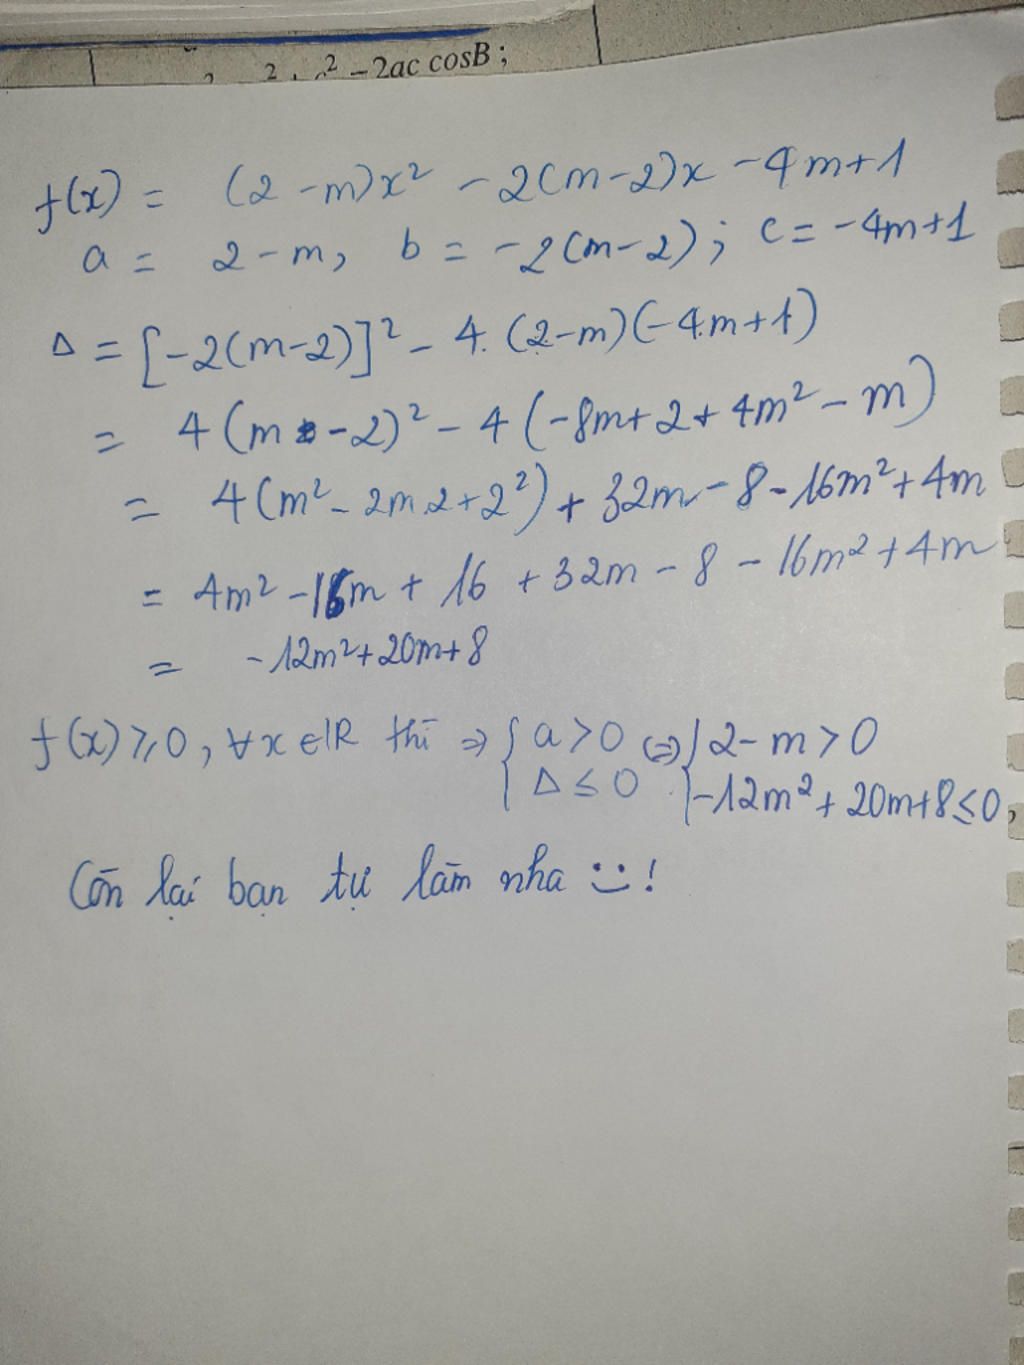 2 - 2ac cosB ;
f(x) = (2 - m)x² - 2(m-2)x - 4m+1
a = 2-m, b = -2(m-2); c = -4m+1
Δ = [-2(m-2)]² - 4.(2-m)(-4m+1)
= 4(m -2)² - 4(-8m+2+4m² - m)
= 4(m² - 2m.2+2²) + 32m - 8 - 16m² + 4m
= 4m² - 16m + 16 + 32m - 8 - 16m² + 4m
= -12m²+20m+8
f(x) ⩾ 0, ∀x ∈ IR thì ⇒ { a > 0 ⇔ { 2 - m > 0
Δ ≤ 0 -12m² + 20m+8 ≤ 0,
Còn lại bạn tự làm nha :-)!